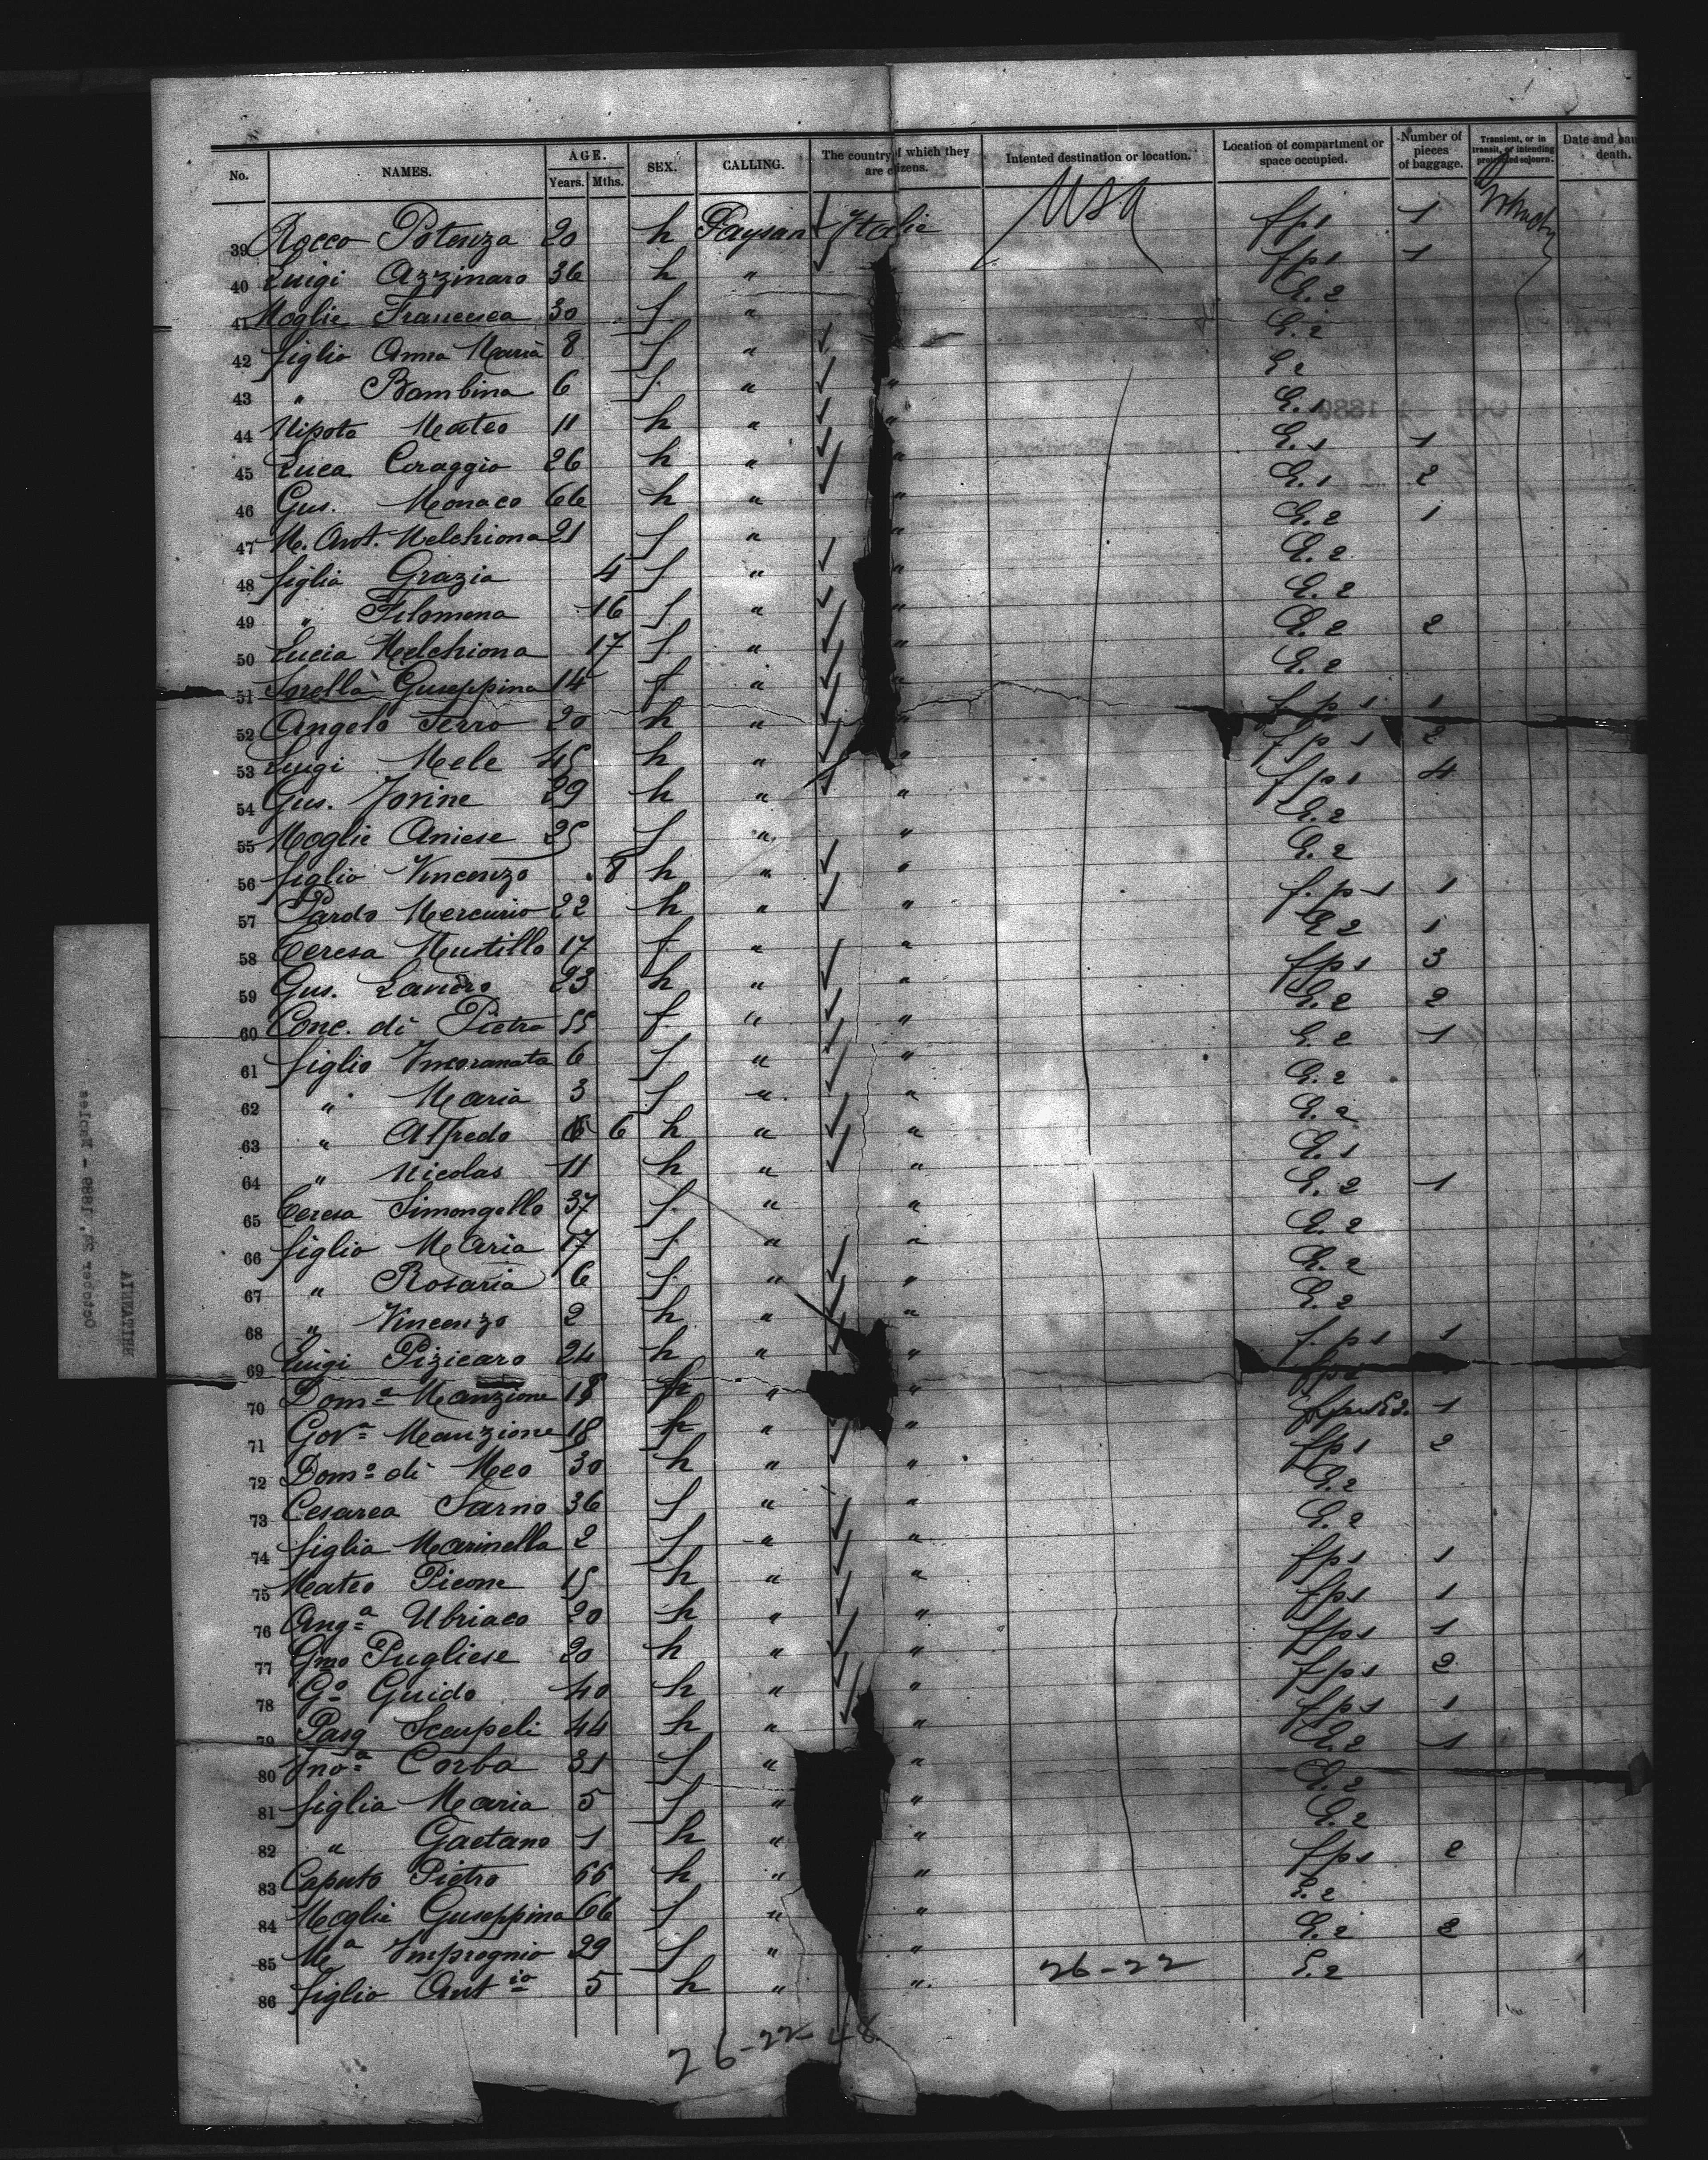 No. NAMES. AGE. Years. Mths. SEX. CALLING. The country of which they are citizens. Intented destination or location. Location of compartment or space occupied. Number of pieces of baggage. Transient, or in transit, or intending protracted sojourn. Date and cause death.
39 Rocco Potenza 20 h Paysan Italie USA fps 1
40 Luigi Azzinaro 36 h " fps 1
41 Moglie Francesca 30 f " E. 2
42 figlia Anna Maria 8 f " E. 2
43 " Bambina 6 f. " " E 2
44 Nipote Mateo 11 h " " E. 1
45 Luca Coraggio 26 h " " E. 1 1
46 Gus. Monaco 66 h " " E. 1 2
47 M. Ant. Melchiona 21 f " " E. 2 1
48 figlia Grazia 4 f " " E. 2
49 " Filomena 16 f " " E. 2
50 Lucia Melchiona 17 f " " E. 2 2
51 Sorella Guseppina 14 f " " E. 2
52 Angelo Serro 20 h " " f. p s 1
53 Luigi Mele 45 h " " f p s 2
54 Gus. Jovine 29 h " " fps 4
55 Moglie Aniese 25 f " " E. 2
56 figlio Vincenzo 8 h " " E. 2
57 Pardo Mercurio 22 h " " f. p s 1
58 Teresa Mustillo 17 f " " E 2 1
59 Gus. 23 h " " fps 3
60 Conc. di Pietro 55 f. " " E. 2 2
61 figlio Incoranata 6 f " " E. 2 1
62 " Maria 3 f " " E. 2
63 " Alfredo 6 h " " E. 2
64 " Nicolas 11 h " " E. 1
65 Teresa Simongello 37 f. " " E. 2 1
66 figlio Maria 17 f. " " E. 2
67 " Rosaria 6 f. " " E. 2
68 " Vincenzo 2 h " " E. 2
69 Luigi Pizicaro 24 h " " f. ps 1
70 Doma Manzione 18 " " fps
71 Gova Manzione 18 " " E2. 1
72 Domo di Meo 30 h " " fps 2
73 Cesarea Sarno 36 f " " E. 2
74 figlia Marinella 2 f " " E. 2
75 Mateo Picone 15 h " " fps 1
76 Anga Ubriaco 20 h " " fps 1
77 Gmo Pugliese 20 h " " fps 1
78 Go Guido 40 h " " fps 2
79 Pasq Scarpeli 44 h " " fps 1
80 Corba 31 f " " E. 2 1
81 figlia Maria 5 f " " E. 2
82 " Gaetano 1 h " " E. 2
83 Caputo Pietro 66 h " " fps 2
84 Moglie Guseppina 66 f " " E. 2
85 Ma Imprognio 29 f " " E. 2 2
86 figlio Antio 5 h " " 26-22 E. 2
26-22-48
ALFNATINE
October 25, 1889 - Naples